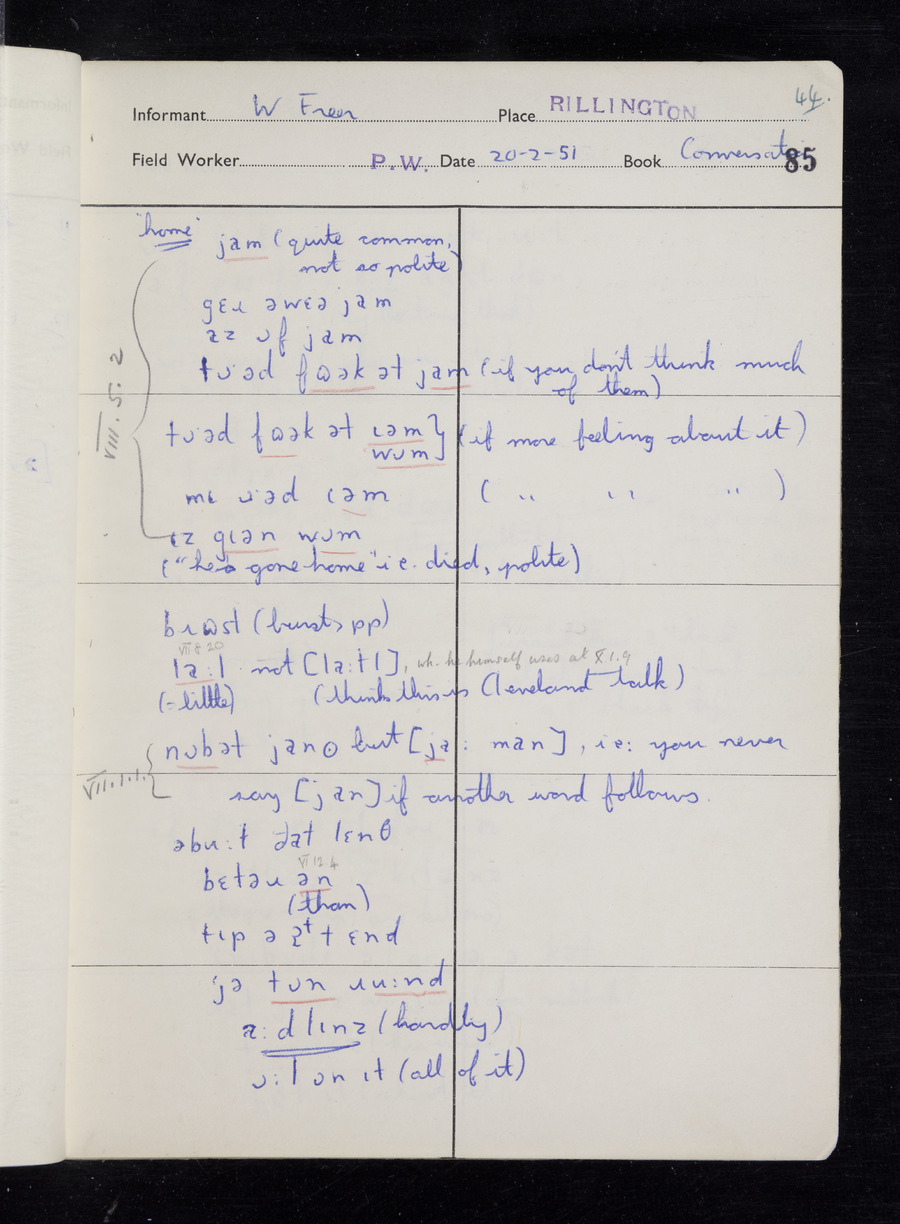 44.
Informant W Freer Place RILLINGTON
Field Worker P.W. Date 20-2-51 Book Conversat 85
"home" jam (quite common,
not so polite)
gɛɹ əwɛə jam
az ʊf jam
VIII.5.2
tʊəd fɷək ət jam (if you don't think much
of them)
tʊəd fɷək ət ɩəm } (if more feeling about it)
wʊm
mɩ ʊəd ɩəm ( " " " )
ɩz gɩən wʊm
("he's gone home" i.e. died, polite)
bɹɷst (burst, pp)
la:l not [la:tl], wh. he himself uses at
(= little) (thinks this is Cleveland talk)
VII.1.1.
nʊbət jan but [ja: man], ie: you never
say [jan] if another word follows.
əbu:t ðat lɛnθ
VI 12 4
bɛtəɹ ən
(than)
tɩp ə t ɛnd
jə tʊn ɹu:nd
a:dlɩnz (hardly)
ʊ:l ʊn ɩt (all of it)